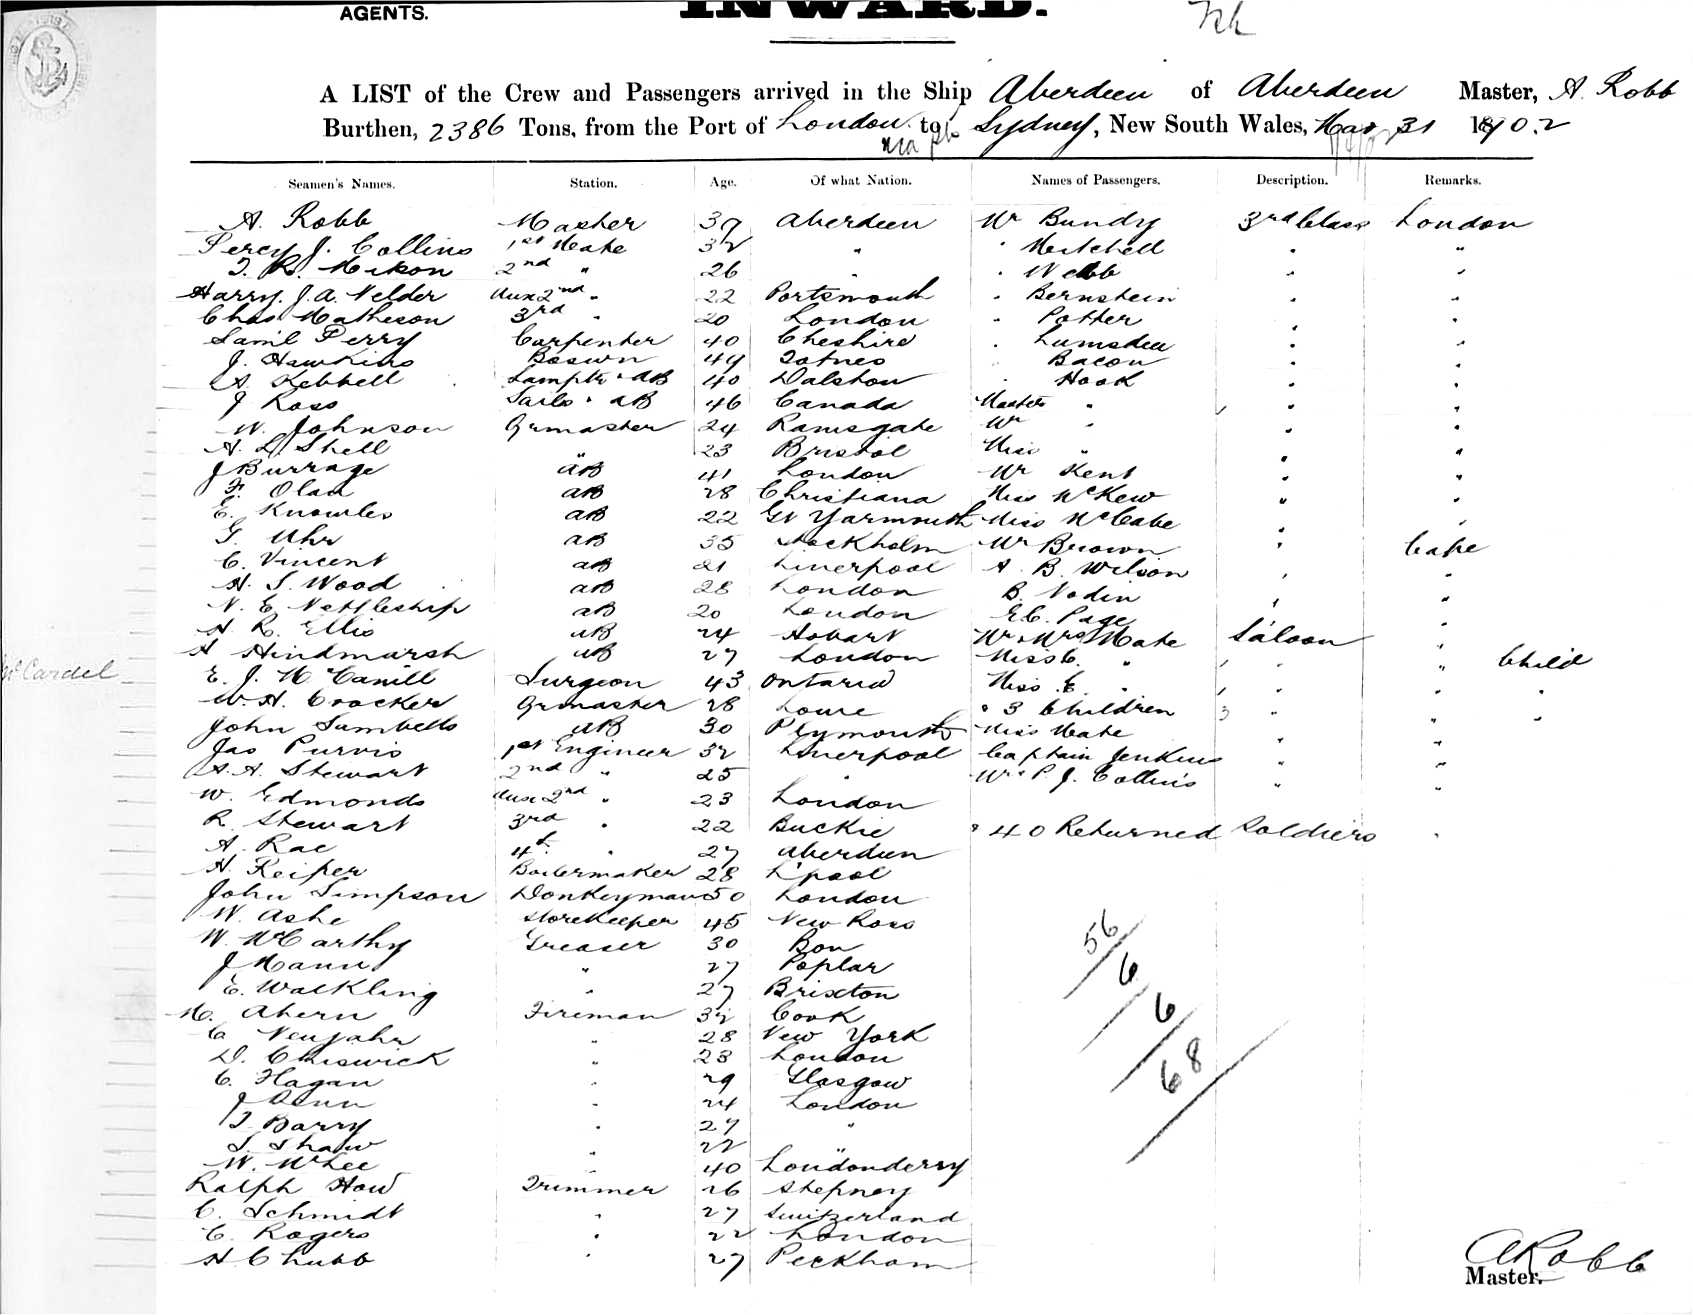 AGENTS.
INWARD.
A LIST of the Crew and Passengers arrived in the Ship Aberdeen of Aberdeen Master, A. Robb
Burthen, 2386 Tons, from the Port of London to Sydney, New South Wales, Mar 31 1890.2
via
Seamen's Names. Station. Age. Of what Nation. Names of Passengers. Description. Remarks.
A. Robb Master 37 Aberdeen Mr Bundy 3rd Class London
Percy J. Collins 1st Mate 32 " " Mitchell " "
2nd " 26 " " Webb " "
Harry J. A. Nelder Aux 2nd " 22 Portsmouth " Bernstein " "
Chas Matheson 3rd " 20 London " Potter " "
Saml Perry Carpenter 40 Cheshire " Lumsden " "
J. Hawkins Boswn 49 Totnes Bacon " "
A Kebbell Lamptr & AB 40 Dalston " Hook " "
J Ross Sailr & AB 46 Canada Master " " "
W. Johnson Qrmaster 24 Ramsgate Mr " " "
A. L. Shell " 23 Bristol Miss " " "
J Burrage AB 41 London Mr Kent " "
F. Olan AB 28 Christiana Miss McKew " "
E. Knowles AB 22 Gt Yarmouth Miss McCabe " "
G. Uhr AB 35 Stockholm Mr Brown " Cape
C. Vincent AB 21 Liverpool A. B. Wilson " "
H. S. Wood AB 28 London B. Nodin " "
N. E. Nettleship AB 20 London E.C. Page " "
H. R. Ellis AB 24 Hobart Mr & Mrs Mate Saloon "
A Hindmarsh AB 27 London Miss C. " " " Child
McCardel
E. J. McCamill Surgeon 43 Ontario Miss E. " " " "
W. H. Crocker Qrmaster 28 " 3 Children 3 " " "
John Sambells AB 30 Plymouth Miss Mate " "
Jas Purvis 1st Engineer 32 Liverpool Captain Jenkins " "
A. A. Stewart 2nd " 25 " Mrs P. J. Collins " "
W. Edmonds Aux 2nd " 23 London
R. Stewart 3rd " 22 Buckie " 40 Returned Soldiers "
A. Rae 4th " 27 Aberdeen
H. Keiper Boilermaker 28 L'pool
John Simpson Donkeyman 50 London
W. Ashe Storekeeper 45 New Ross
W. McCarthy Greaser 30 Bow
J Mann " 27 Poplar
E. Walkling " 27 Brixton
M. Ahern Fireman 32 Cork
C Neujahr " 28 New York
D. Chiswick " 23 London
C. Hagan " 29 Glasgow
J Dunn " 24 London
T. Barry " 27 "
S. Shaw " 22 "
W. McLee " 40 Londonderry
Ralph How Trimmer 26 Stepney
C. Schmidt " 27 Switzerland
C. Rogers " 22 London
H Chubb " 27 Peckham
56
6
6
68
A Robb
Master.